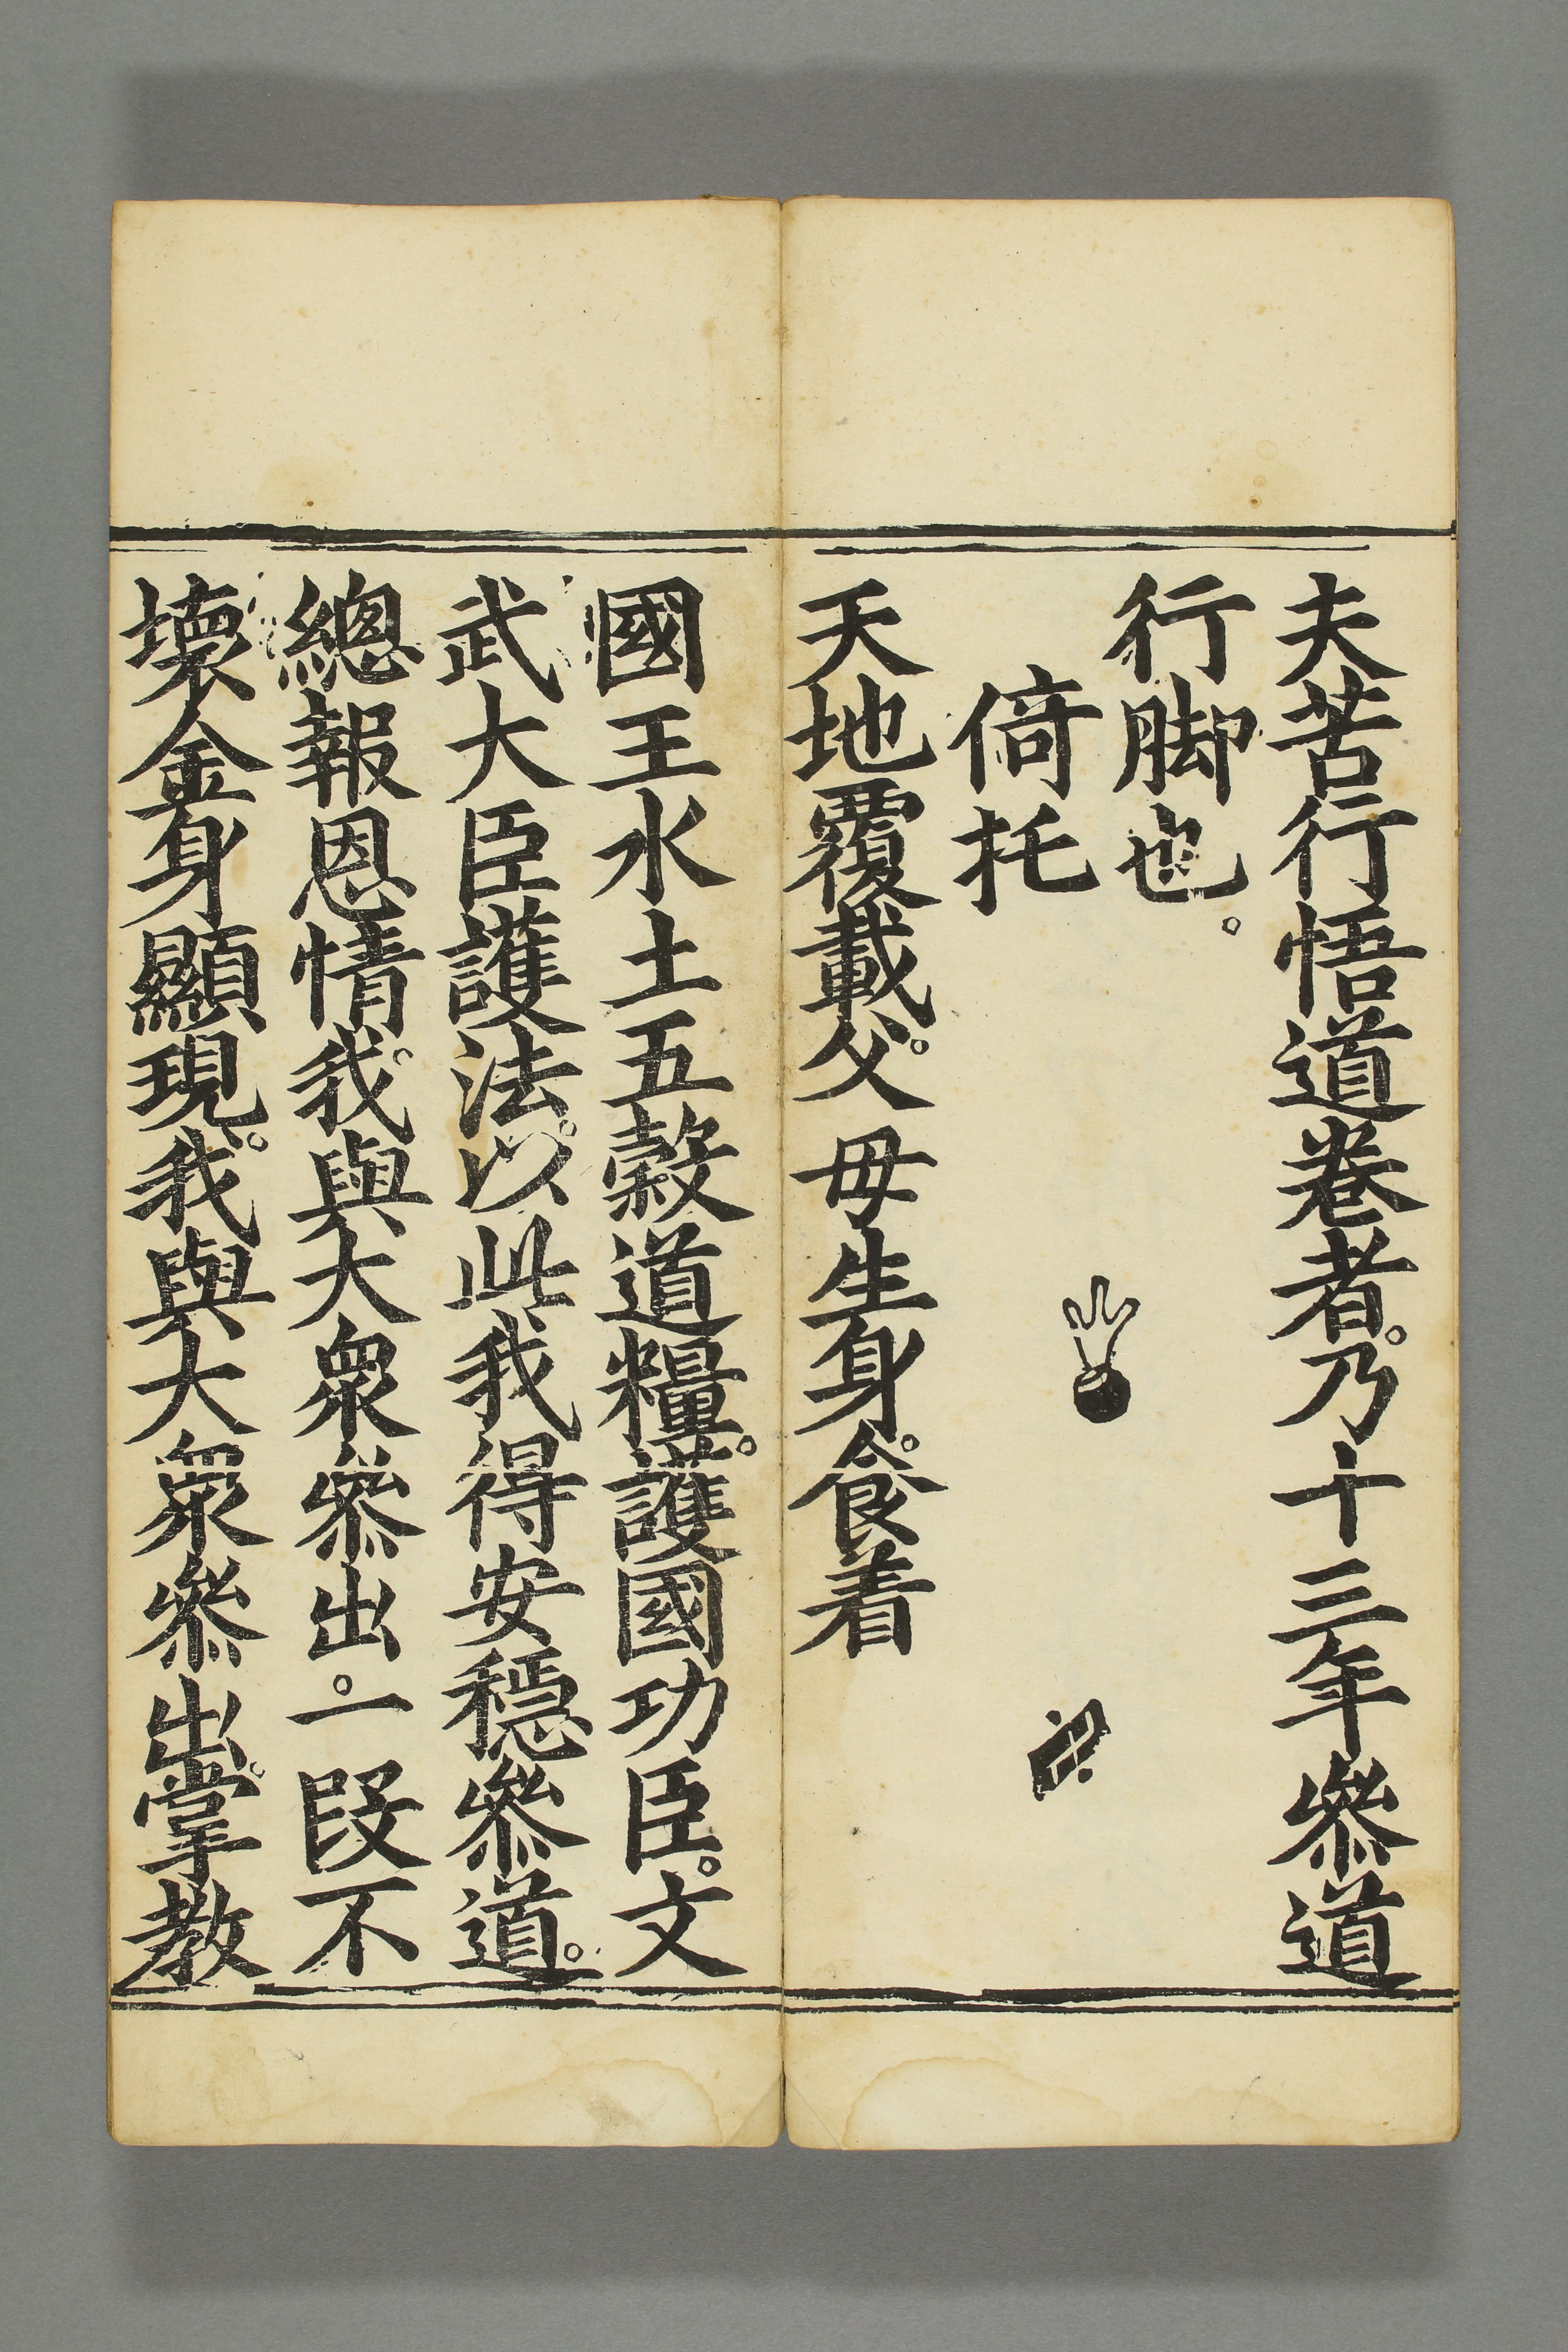 夫苦行悟道卷者。乃十三年叅道
行脚也。
倚托
天地覆載。父母生身。食着
國王水土五穀道糧。護國功臣。文
武大臣護法。以此我得安穩叅道。
總報恩情。我與大衆叅出。一段不
壞金身顯現。我與大衆叅出。掌教